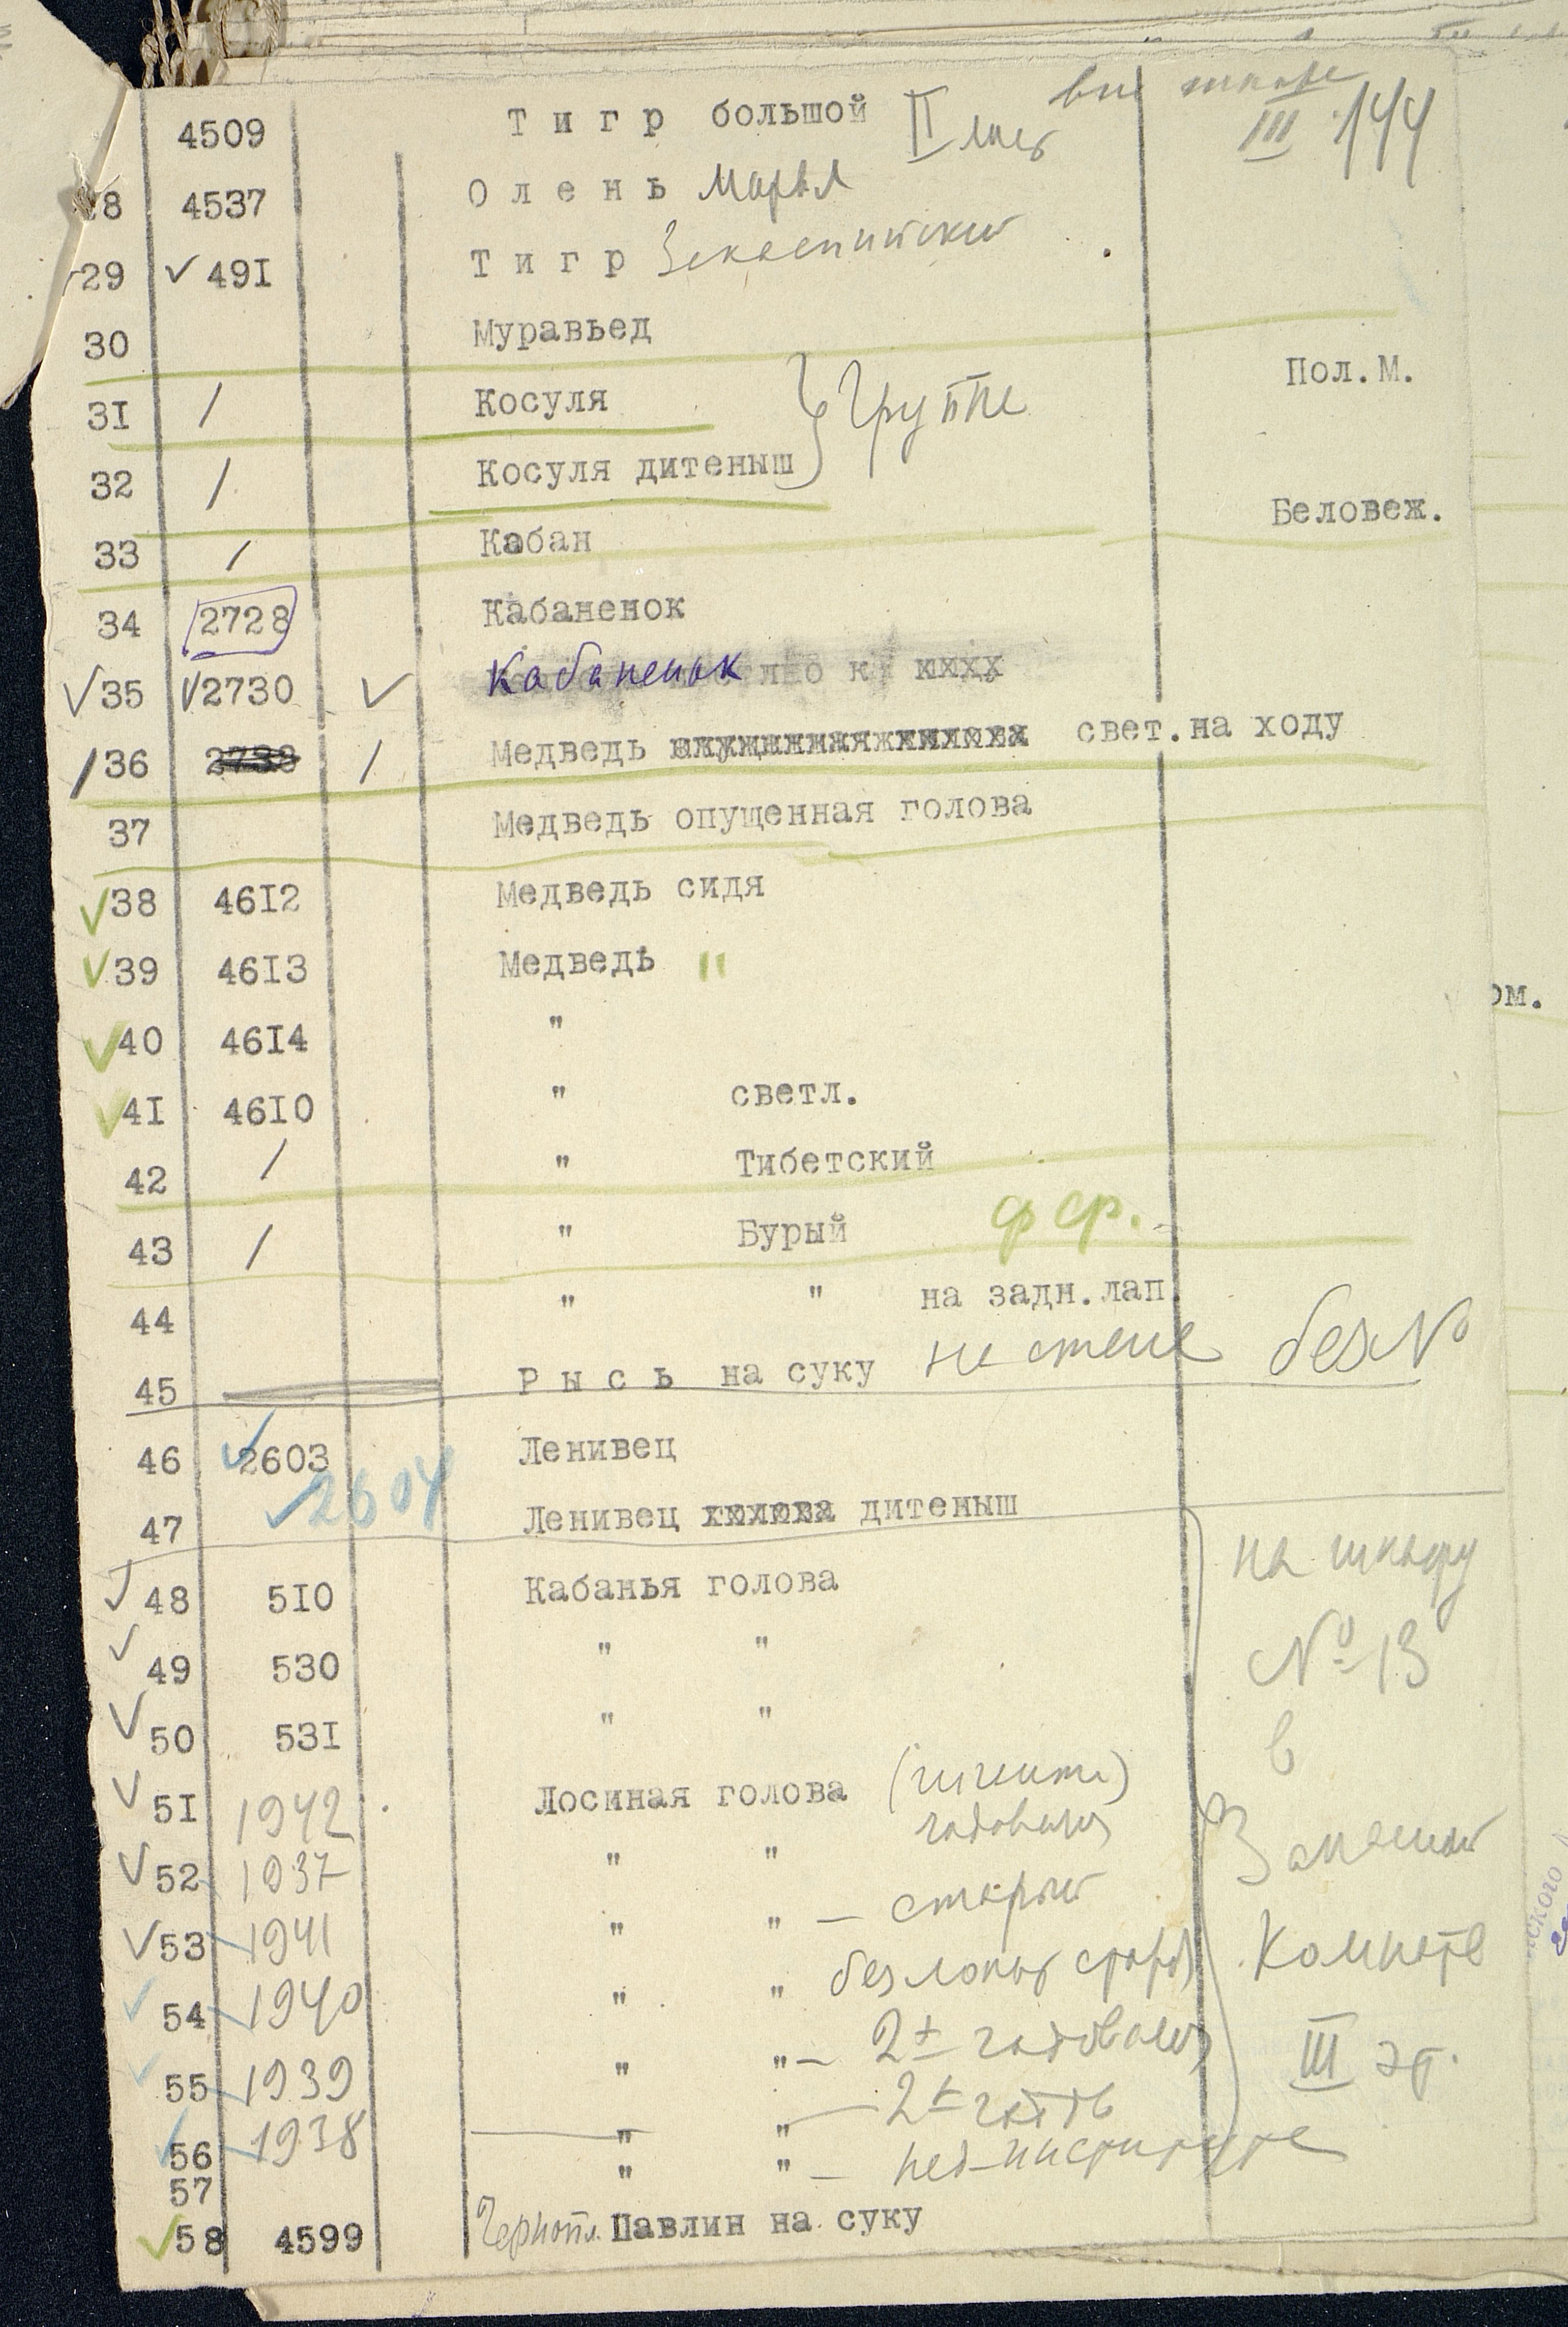 4509 Тигр большой II III 144
28 4537 Олень Марал
✓29 ✓ 491 Тигр Закаспийский
30 Муравьед
31 / Косуля } Группа Пол.М.
32 / Косуля дитеныш
33 / Кабан Беловеж.
34 2728 Кабаненок
✓35 ✓2730 ✓ Кабаненок
/36 / Медведь свет.на ходу
37 Медведь опущенная голова
✓38 4612 Медведь сидя
✓39 4613 Медведь "
✓40 4614 "
✓41 4610 " светл.
42 / " Тибетский
43 / " Бурый ф ср.
44 " " на задн.лап.
45 Рысь на суку на стене без №
46 ✓2603 Ленивец
47 ✓2604 Ленивец дитеныш
✓48 510 Кабанья голова на шкафу
✓49 530 " " № 13
✓50 531 " " в
✓51 1942 Лосиная голова (гиганта)
✓52 1937 " " годовалая
✓53 1941 " " – старый комнате
✓54 1940 " " без лопат
✓55 1939 " " – 2± III эт.
✓56 1938 " " – 2± года
57 " " –
✓58 4599 Чернопл. Павлин на суку
ом.
ского